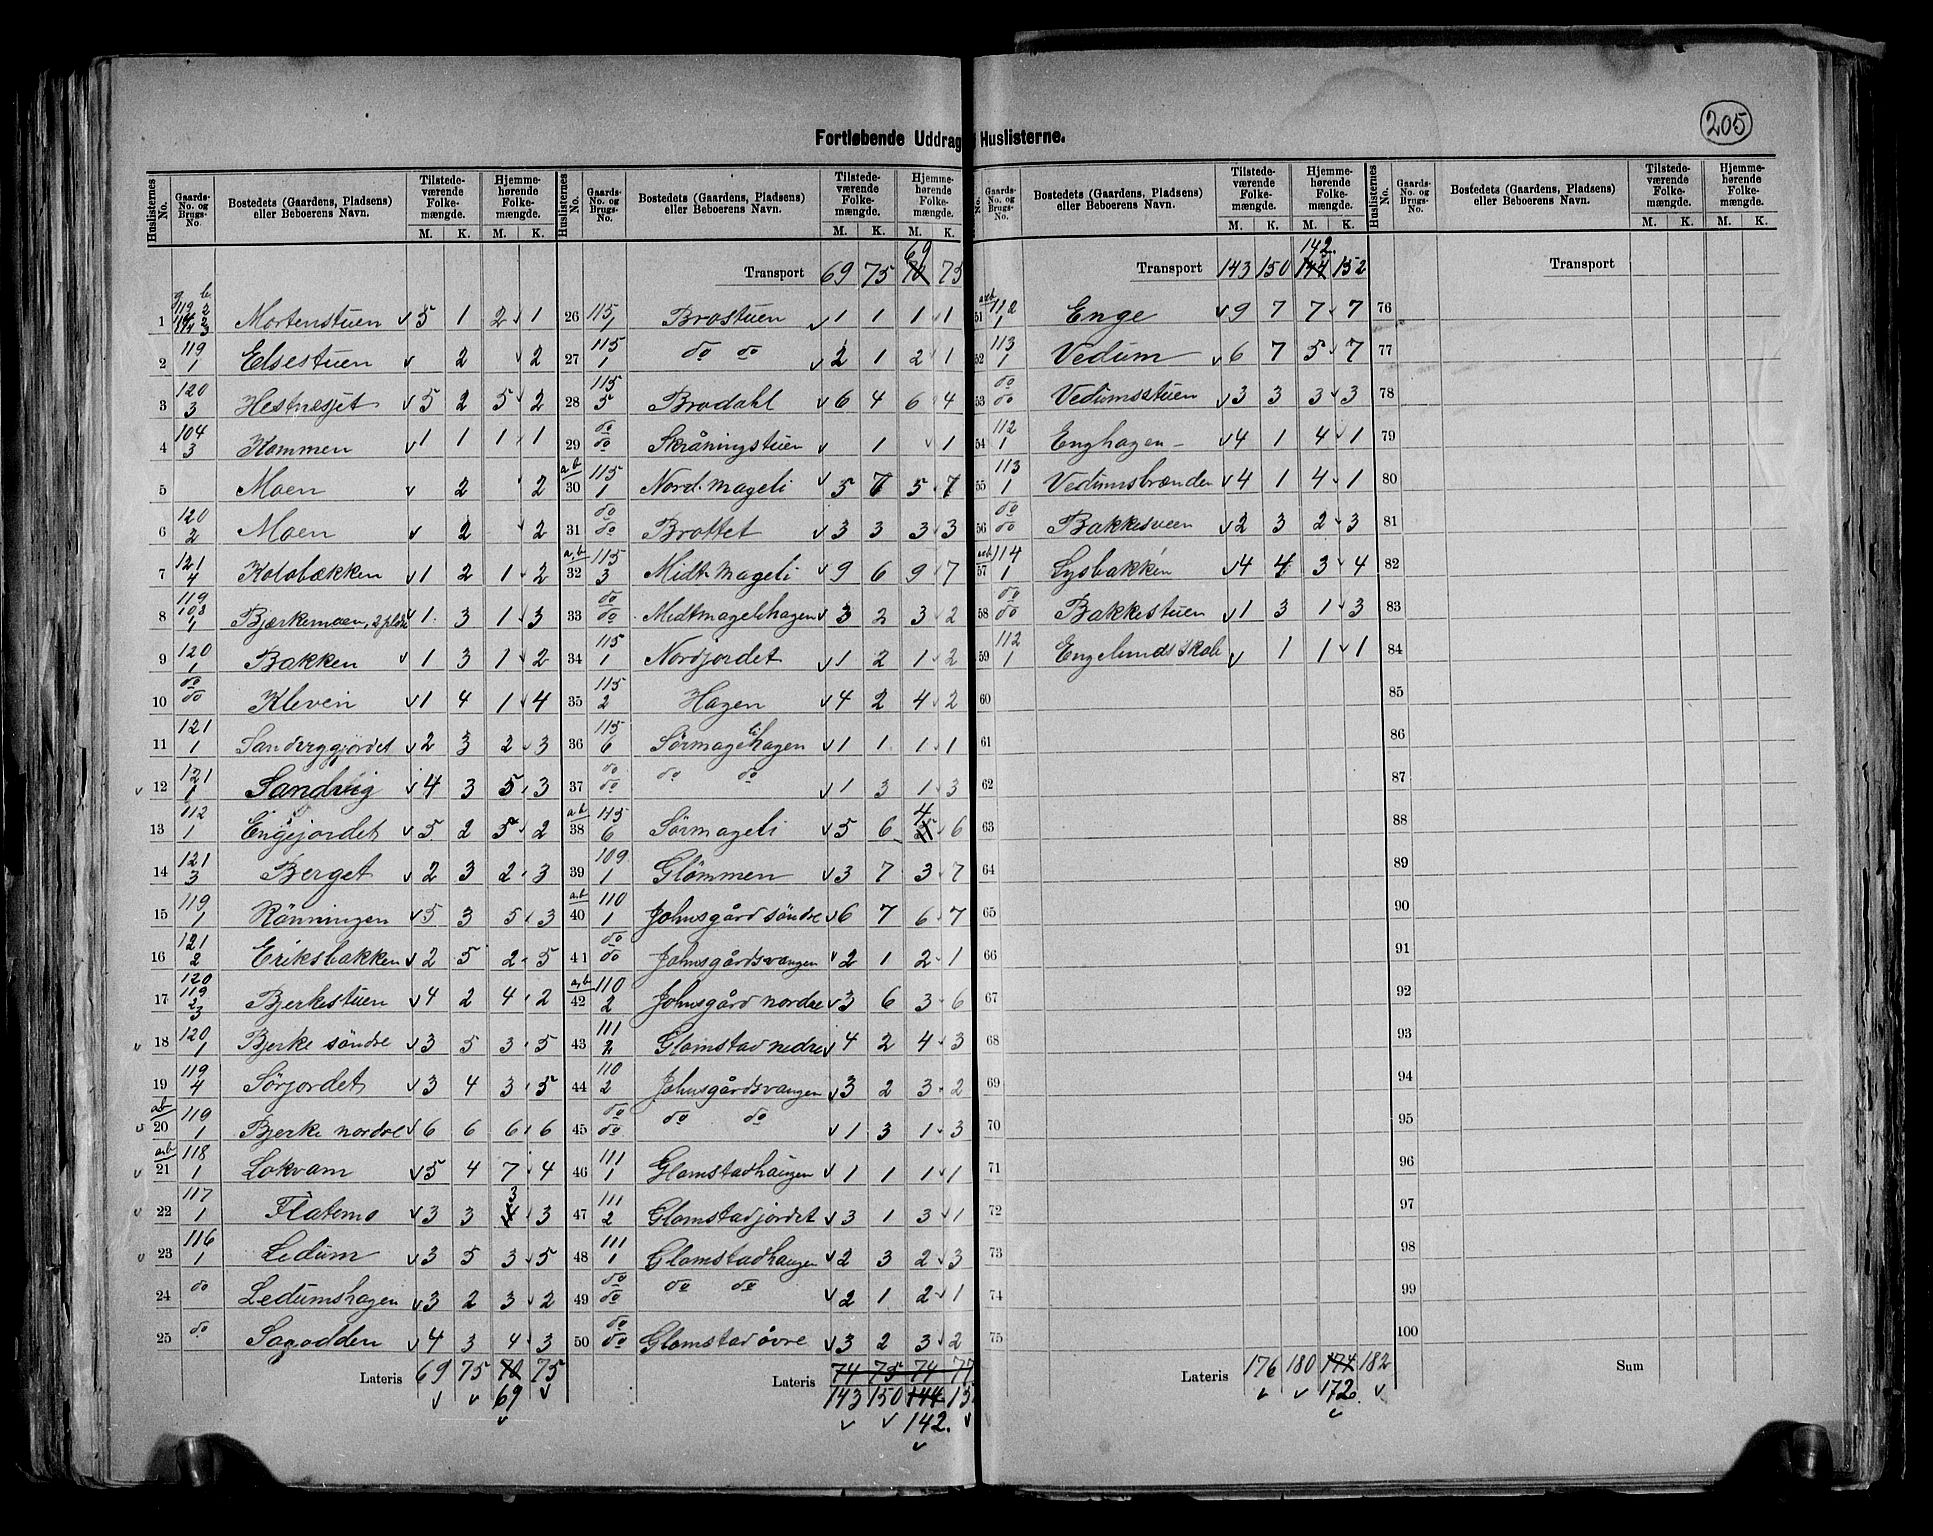 205
Fortløbende Uddrag Huslisterne.
Huslisternes No. Gaards-No. og Brugs-No. Bostedets (Gaardens, Pladsens) eller Beboerens Navn. Tilstedeværende Folkemængde. M. K. Hjemmehørende Folkemængde. M. K.
g b
1 119 2 Mortenstuen 5 1 2 1
2 119 1 Elsestuen 2 2
3 120 3 Hestnesjet 5 2 5 2
4 104 3 Kommen 1 1 1 1
5 Moen 2 2
6 120 2 Moen 2 2
7 121 4 Kolobækken 1 2 1 2
8 119 108 1 Bjerkemoen, 2 1 3 1 3
9 120 1 Bakken 1 3 1 2
10 do do Kleven 1 4 1 4
11 121 1 Sandviggjordet 2 3 2 3
12 121 1 Sandvig 4 3 5 3
13 112 1 Engejordet 5 2 5 2
14 121 3 Berget 2 3 2 3
15 119 1 Rönningen 5 3 5 3
16 121 2 Eriksbakken 2 5 2 5
17 120 119 2 3 Bjerkestuen 4 2 4 2
18 120 1 Bjerke söndre 3 5 3 5
19 119 4 Sörjordet 3 4 3 5
ab 20 119 1 Bjerke nordre 6 6 6 6
a,b 21 118 1 Lokvam 5 4 7 4
22 117 1 Flatemo 3 3 3 3
23 116 1 Ledum 3 5 3 5
24 do Ledumshagen 3 2 3 2
25 do Sagodden 4 3 4 3
Lateris 69 75 70 75
69
Huslisternes No. Gaards-No. og Brugs-No. Bostedets (Gaardens, Pladsens) eller Beboerens Navn. Tilstedeværende Folkemængde. M. K. Hjemmehørende Folkemængde. M. K.
69
Transport 69 75 70 75
26 115 1 Brostuen 1 1 1 1
27 115 1 do do 2 1 2 1
28 115 5 Brodahl 6 4 6 4
29 do do Skråningstuen 1 1
a,b 30 115 1 Nord. Mageli 5 7 5 7
31 do do Brottet 3 3 3 3
a,b 32 115 3 Midt. Mageli 9 6 9 7
33 do do Midtmagelihagen 3 2 3 2
34 115 1 Nordjordet 1 2 1 2
35 115 2 Hagen 4 2 4 2
36 115 6 Sörmagelihagen 1 1 1 1
37 do do do do 1 3 1 3
a,b 38 115 6 Sörmageli 5 6 4 6
39 109 1 Glömmen 3 7 3 7
a,b 40 110 1 Johnsgård söndre 6 7 6 7
41 do do Johnsgårdsvangen 2 1 2 1
a,b 42 110 2 Johnsgård nordre 3 6 3 6
43 111 2 Glomstad nedre 4 2 4 3
44 110 2 Johnsgårdsvangen 3 2 3 2
45 do do do do 1 3 1 3
46 111 1 Glomstadhaugen 1 1 1 1
47 111 2 Glomstadjordet 3 1 3 1
48 111 1 Glomstadhaugen 2 3 2 3
49 do do do do 2 1 2 1
50 do do Glomstad övre 3 2 3 2
Lateris 74 75 74 77
143 150 144 15
142.
No. Gaards-No. og Brugs-No. Bostedets (Gaardens, Pladsens) eller Beboerens Navn. Tilstedeværende Folkemængde. M. K. Hjemmehørende Folkemængde. M. K.
142.
Transport 143 150 144 152
a,b 51 112 1 Enge 9 7 7 7
52 113 1 Vedum 6 7 5 7
53 do do Vedumsstuen 3 3 3 3
54 112 1 Enghagen 4 1 4 1
55 113 1 Vedumsbrænden 4 1 4 1
56 do do Bakkesveen 2 3 2 3
a,b 57 114 1 Lysbakken 4 4 3 4
58 do do Bakkestuen 1 3 1 3
59 112 1 Engelunds Skole 1 1 1
60
61
62
63
64
65
66
67
68
69
70
71
72
73
74
75
Lateris 176 180 174 182
172.
Huslisternes No. Gaards-No. og Brugs-No. Bostedets (Gaardens, Pladsens) eller Beboerens Navn. Tilstedeværende Folkemængde. M. K. Hjemmehørende Folkemængde. M. K.
Transport
76
77
78
79
80
81
82
83
84
85
86
87
88
89
90
91
92
93
94
95
96
97
98
99
100
Sum